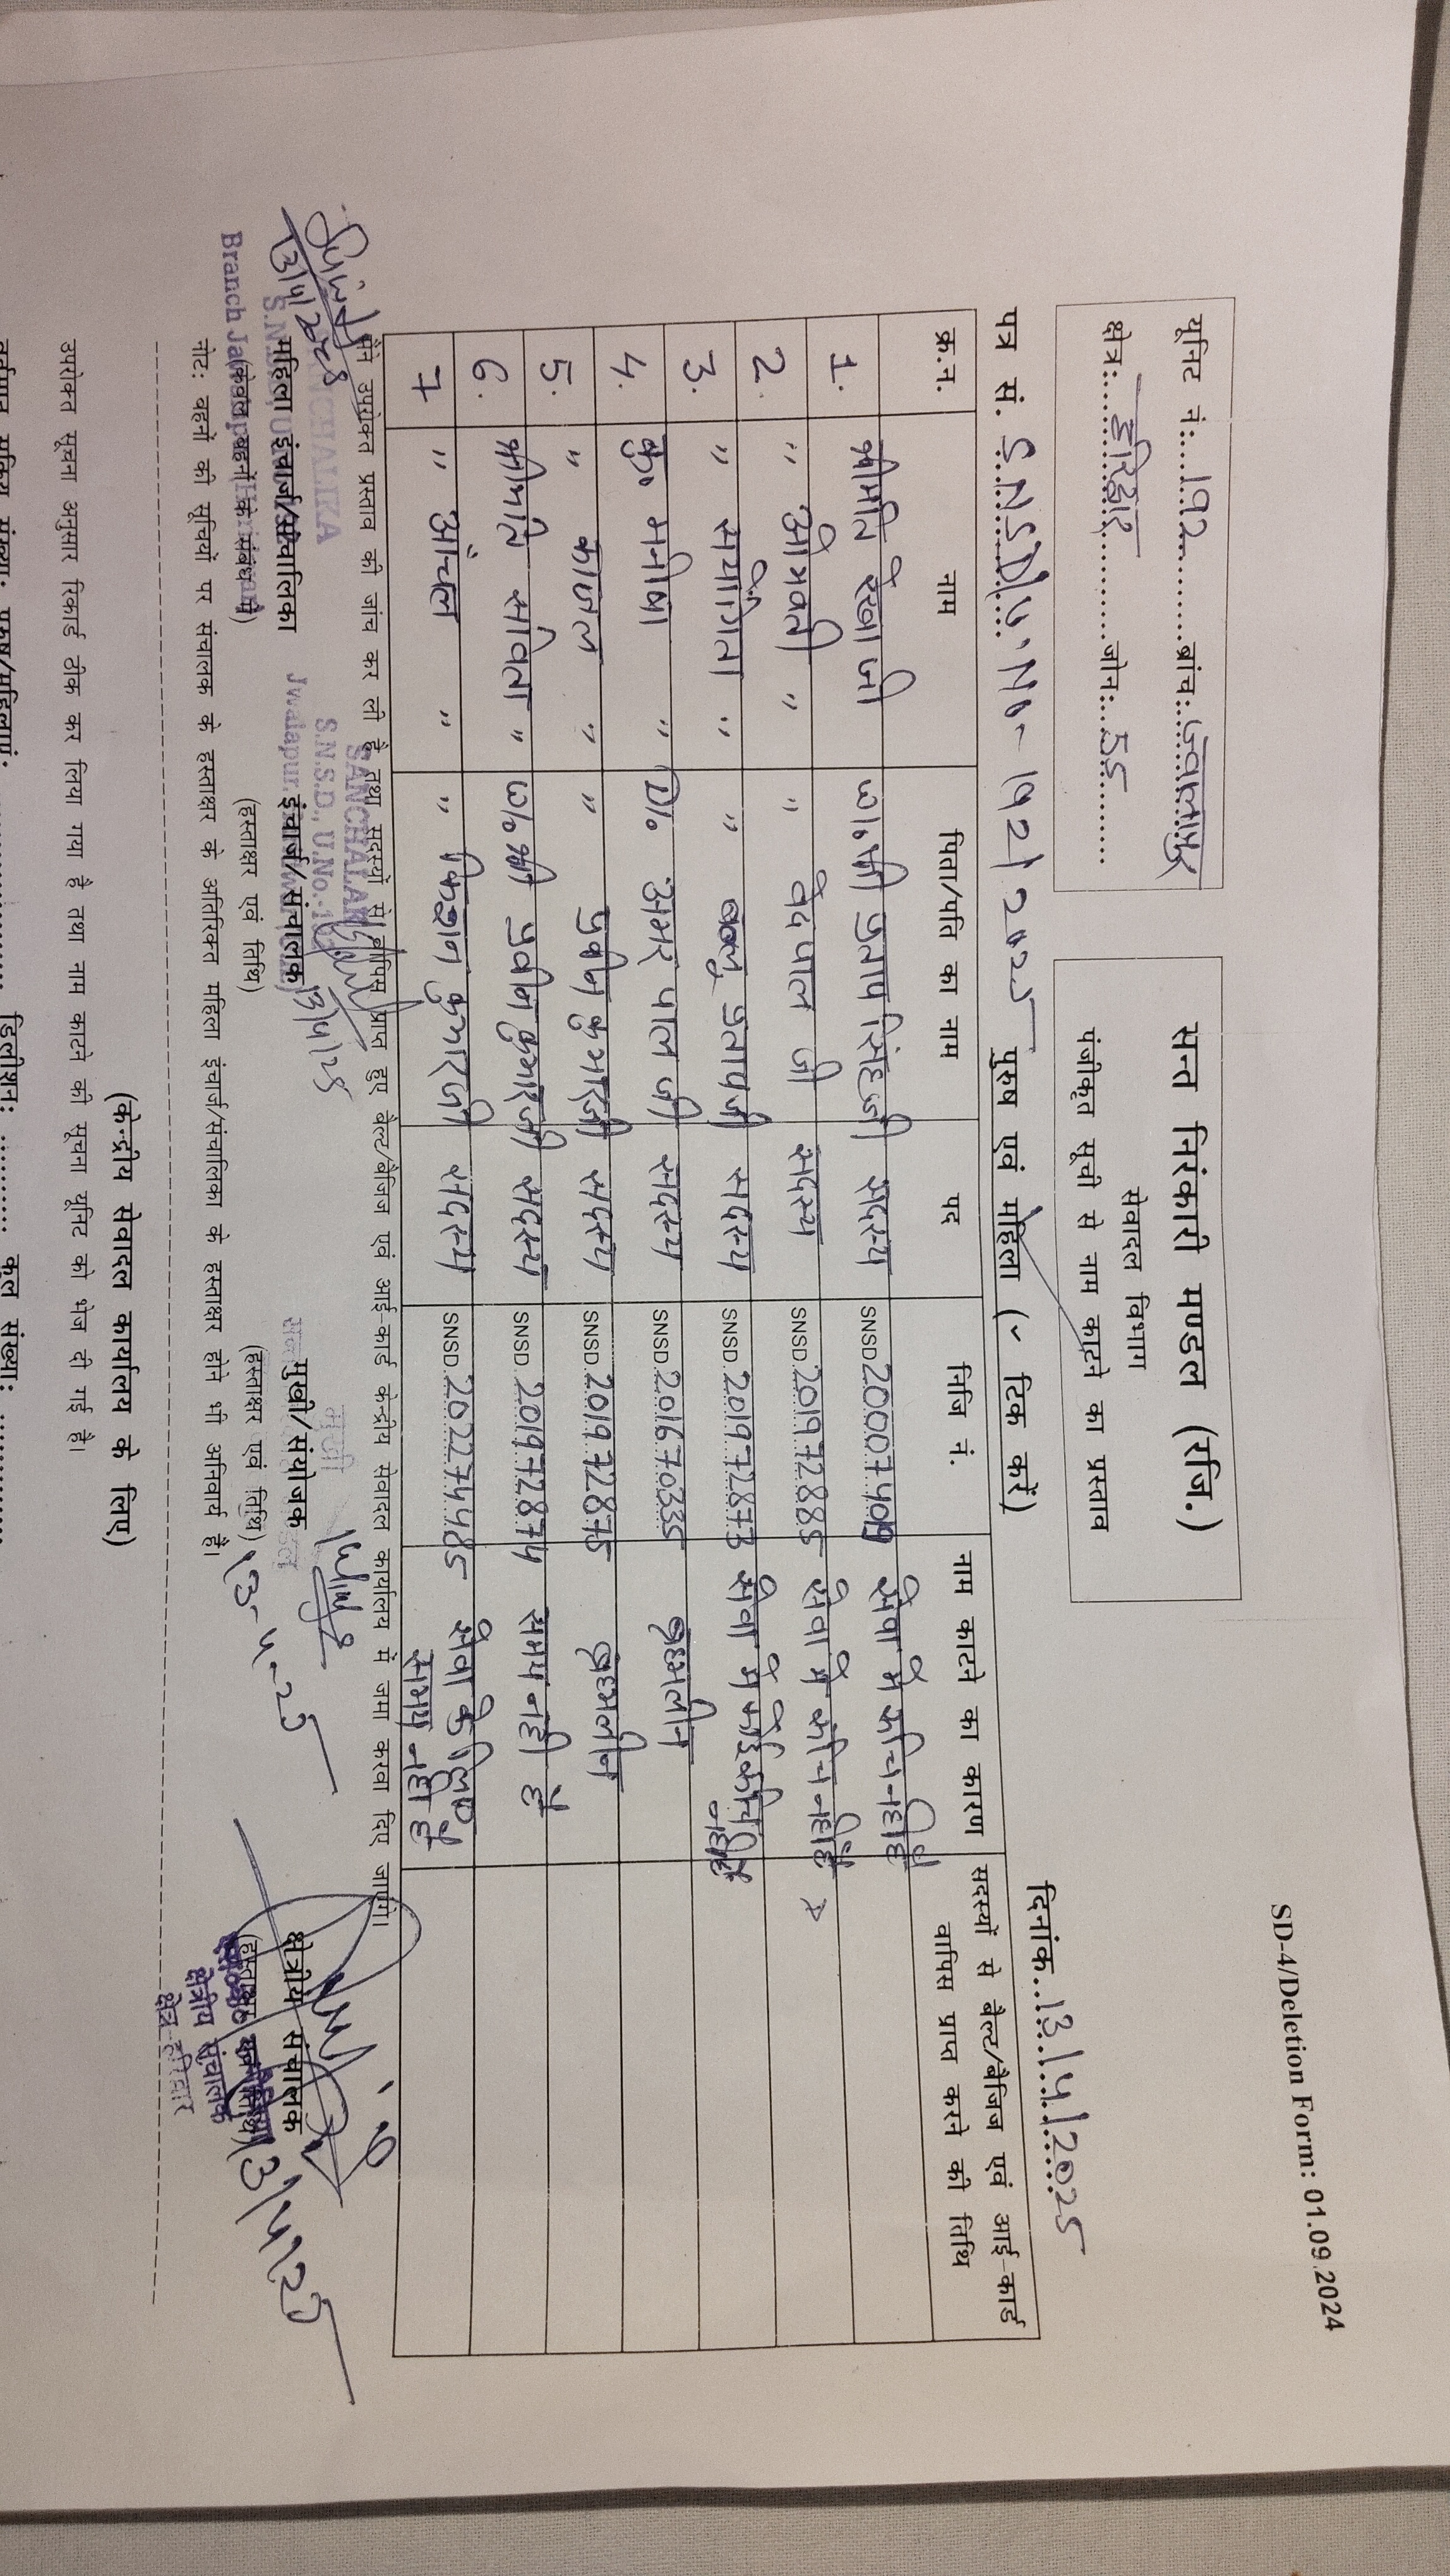 SD-4/Deletion Form: 01.09.2024
यूनिट नं:....192..........ब्रांच:..ज्वालापुर
क्षेत्र:....हरिद्वार............जोन:..55..........
सन्त निरंकारी मण्डल (रजि.)
सेवादल विभाग
पंजीकृत सूची से नाम काटने का प्रस्ताव
दिनांक..13/4/2025
पत्र सं. S.N.S.D/U.No- 192/2025 पुरुष एवं महिला (✓ टिक करें)
क्र.न. नाम पिता/पति का नाम पद निजि नं. नाम काटने का कारण सदस्यों से बेल्ट/बैजिज एवं आई-कार्ड वापिस प्राप्त करने की तिथि
1. श्रीमति रेखा जी w/o श्री प्रताप सिंह जी सदस्य SNSD 20007409 सेवा में रूचि नहीं है
2. " ओमवती " " वेदपाल जी सदस्य SNSD.201972885 सेवा में रूचि नहीं है
3. " संयोगिता " " प्रताप जी सदस्य SNSD.201972873 सेवा में कोई रूचि नहीं है
4. कु० मनीषा " D/o अमर पाल जी सदस्य SNSD.201670335 ब्रह्मलीन
5. " काजल " " प्रवीन कुमार जी सदस्य SNSD.201972875 ब्रह्मलीन
6. श्रीमति सविता " w/o श्री प्रवीन कुमार जी सदस्य SNSD.201972874 समय नही है
7 " आंचल " " किशन कुमार जी सदस्य SNSD.202274485 सेवा के लिए समय नही है
मैंने उपरोक्त प्रस्ताव की जांच कर ली है तथा सदस्यों से वापिस प्राप्त हुए बेल्ट/बैजिज एवं आई-कार्ड केन्द्रीय सेवादल कार्यालय में जमा करवा दिए जाएंगे।
13/4/2025
SANCHALIKA
SANCHALAK
S.N.S.D., U.No.-192
13/4/25
महिला इंचार्ज/संचालिका इंचार्ज/संचालक मुखी/संयोजक क्षेत्रीय संचालक
(केवल बहनों के संबंध में) (हस्ताक्षर एवं तिथि) (हस्ताक्षर एवं तिथि) (हस्ताक्षर एवं तिथि)
Branch Jwalapur
13-4-25
13/4/25
क्षेत्रीय संचालक
क्षेत्र-हरिद्वार
नोट: बहनों की सूचियों पर संचालक के हस्ताक्षर के अतिरिक्त महिला इंचार्ज/संचालिका के हस्ताक्षर होने भी अनिवार्य है।
(केन्द्रीय सेवादल कार्यालय के लिए)
उपरोक्त सूचना अनुसार रिकार्ड ठीक कर लिया गया है तथा नाम काटने की सूचना यूनिट को भेज दी गई है।
वर्तमान सक्रिय संख्या: पुरुष/महिलाएं: डिलीशन: कुल संख्या: